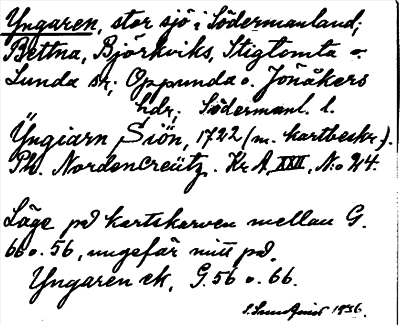 Yngaren, stor sjö i Södermanland;
Bettna, Björkviks, Stigtomta o.
Lunda sn; Oppunda o. Jönåkers
hdr; Södermanl. l.
Yngiarn Siön, 1722 (m. kartbeskr.).
Ph. Nordencreütz. Kr A, XXII, N:o 24.
Läge på kartskarven mellan G.
66 o. 56, ungefär mitt på.
Yngaren ek. G. 56 o. 66.
1936.